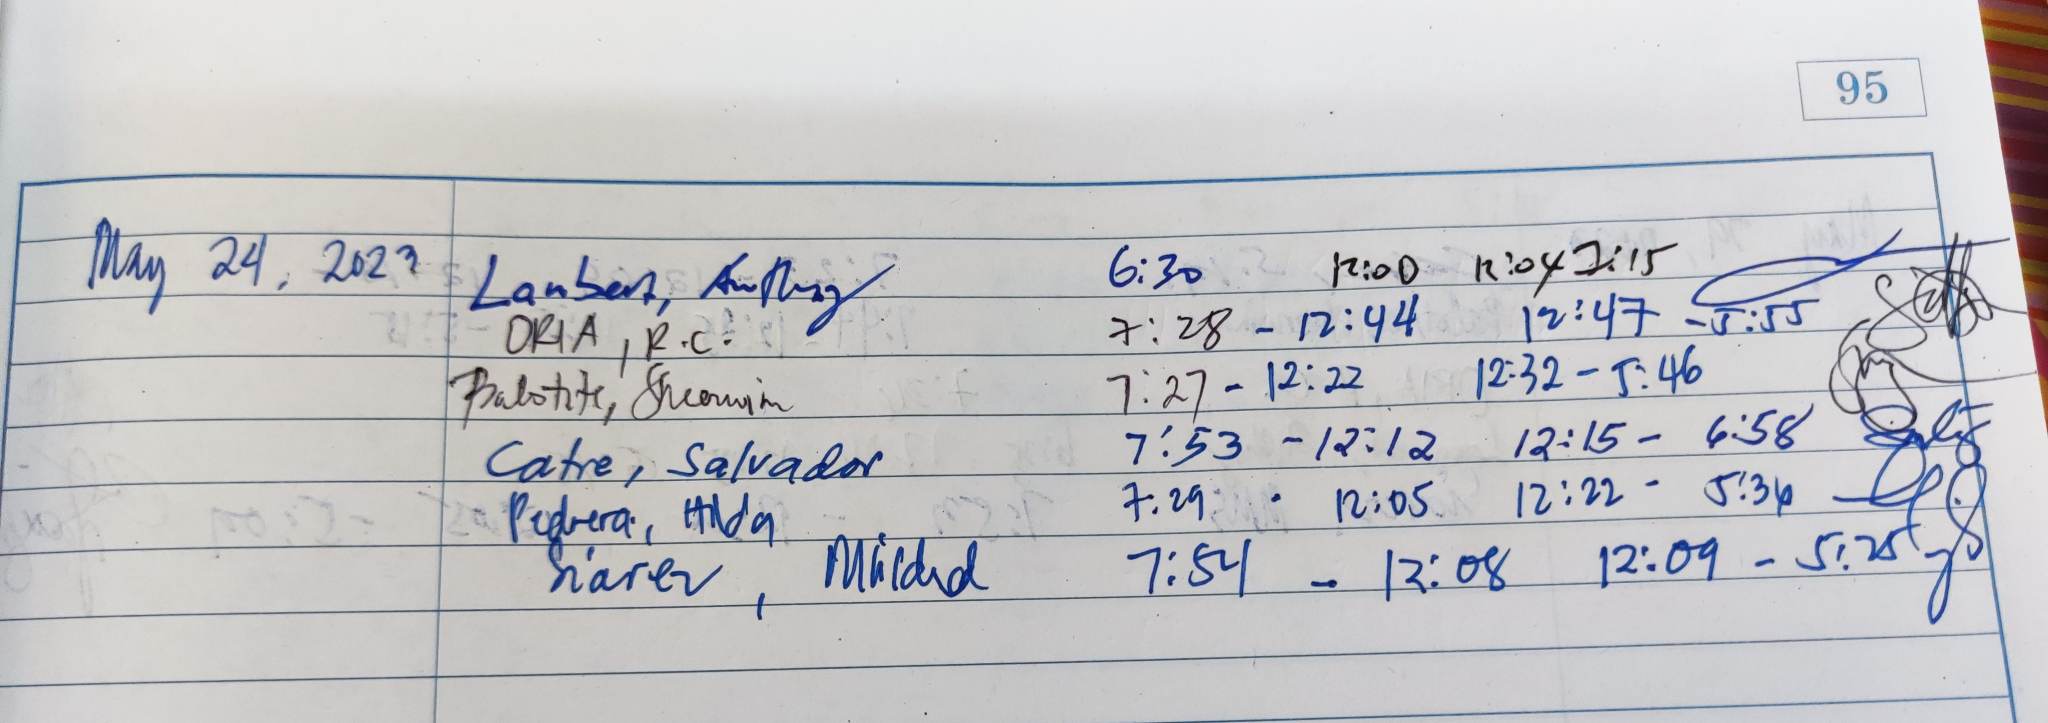 95
May 24, 2023 Lambert, Anthony 6:30 12:00 12:04 7:15
ORIA, R.C. 7:28 - 12:44 12:47 - 5:55
Balotite, Shearwin 7:27 - 12:22 12:32 - 5:46
Catre, Salvador 7:53 - 12:12 12:15 - 6:58
Pedrera, Hilda 7:29 - 12:05 12:22 - 5:34
Suarez, Mildred 7:54 - 12:08 12:09 - 5:25